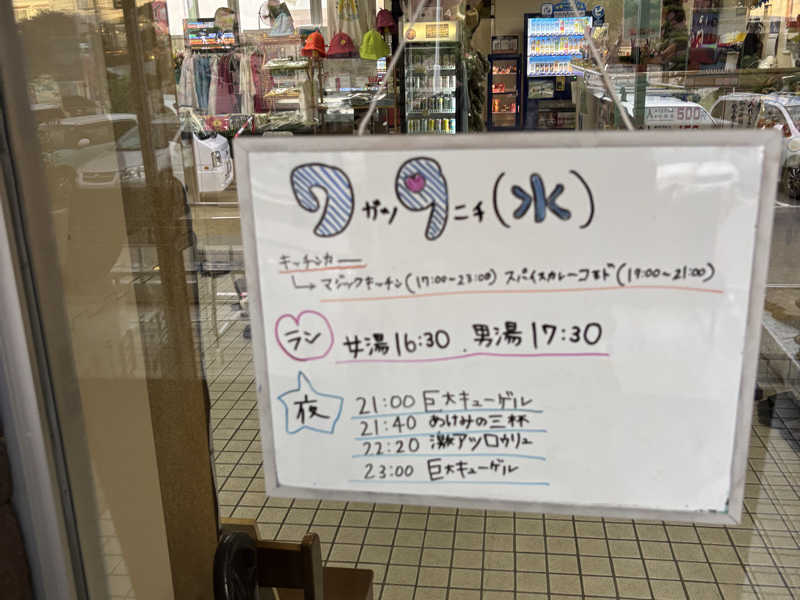 7ガツ9ニチ(水)
キッチンカー
→ マジックキッチン(17:00~23:00) スパイスカレーコヨド(19:00~21:00)
ラン 女湯16:30. 男湯17:30
夜
21:00 巨大キューゲル
21:40 あけみの三杯
22:20 激アツロウリュ
23:00 巨大キューゲル
500